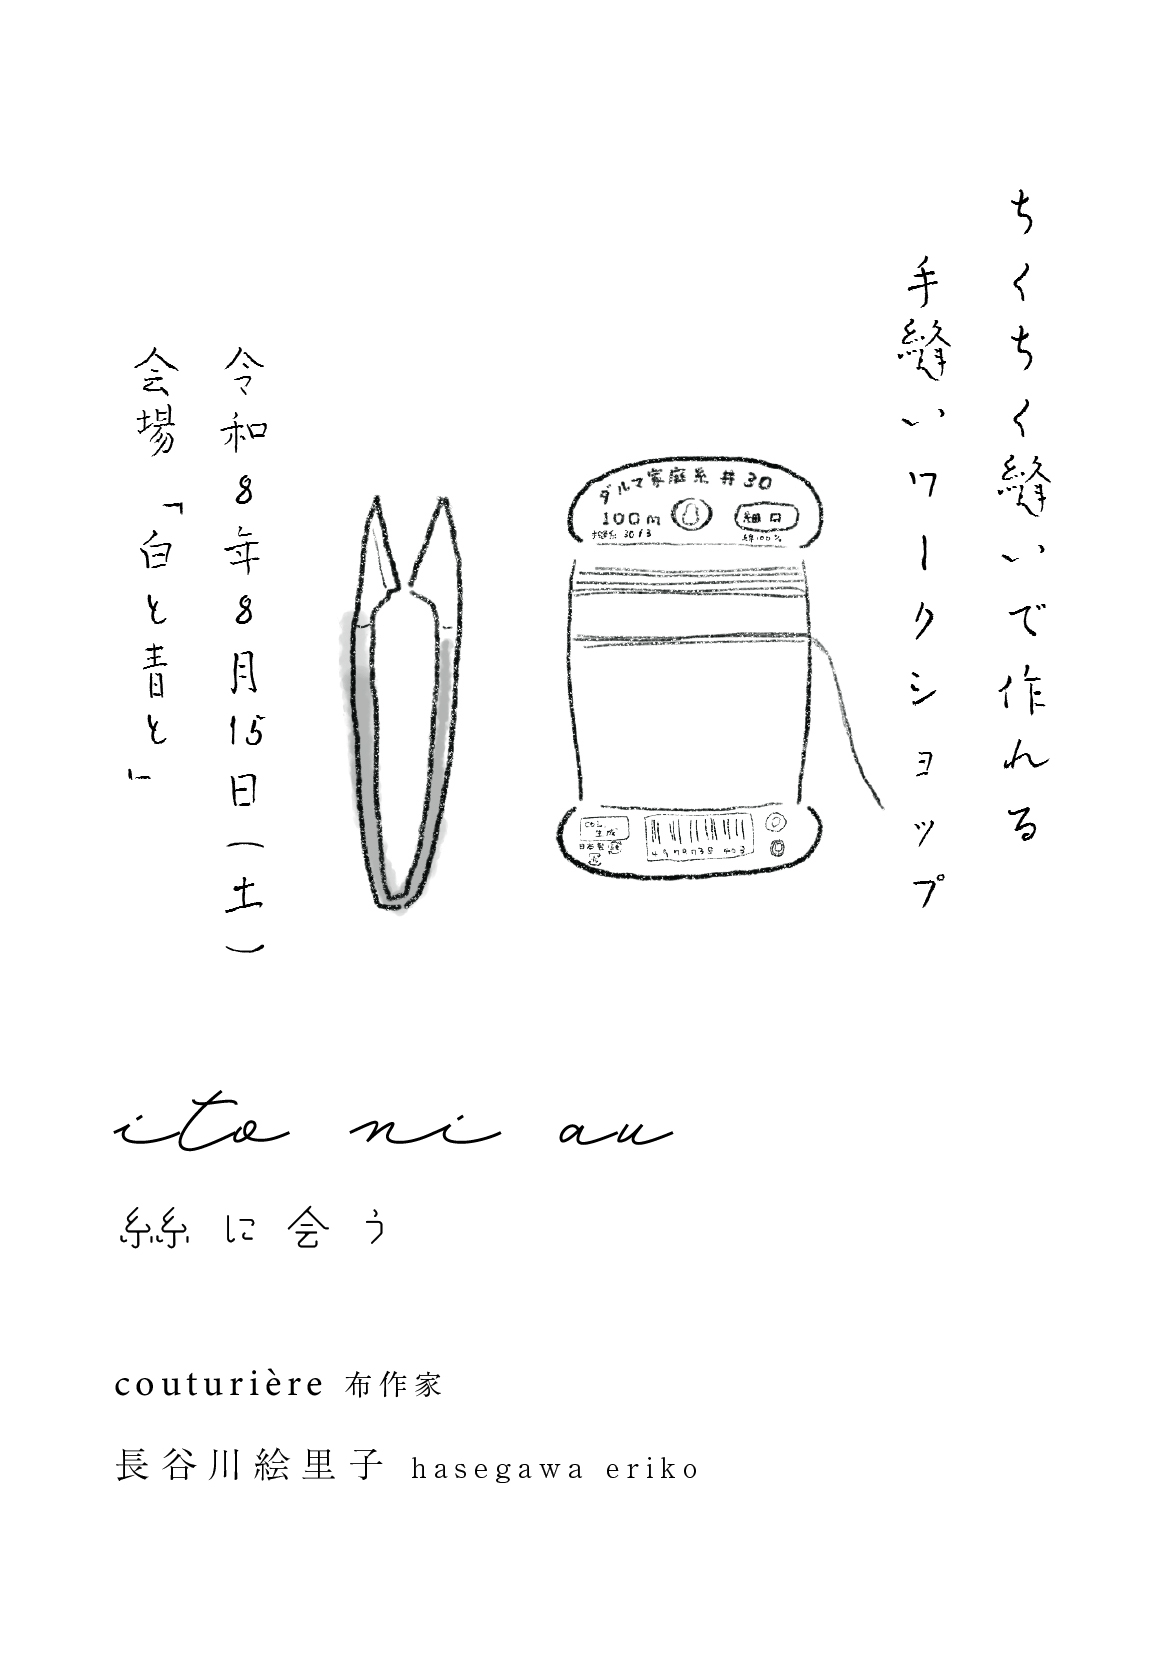 ちくちく縫いで作れる
手縫いワークショップ
ダルマ家庭糸 #30
100m
細口
令和8年8月15日(土)
会場「白と青と」
ito ni au
絲に会う
couturière 布作家
長谷川絵里子 hasegawa eriko